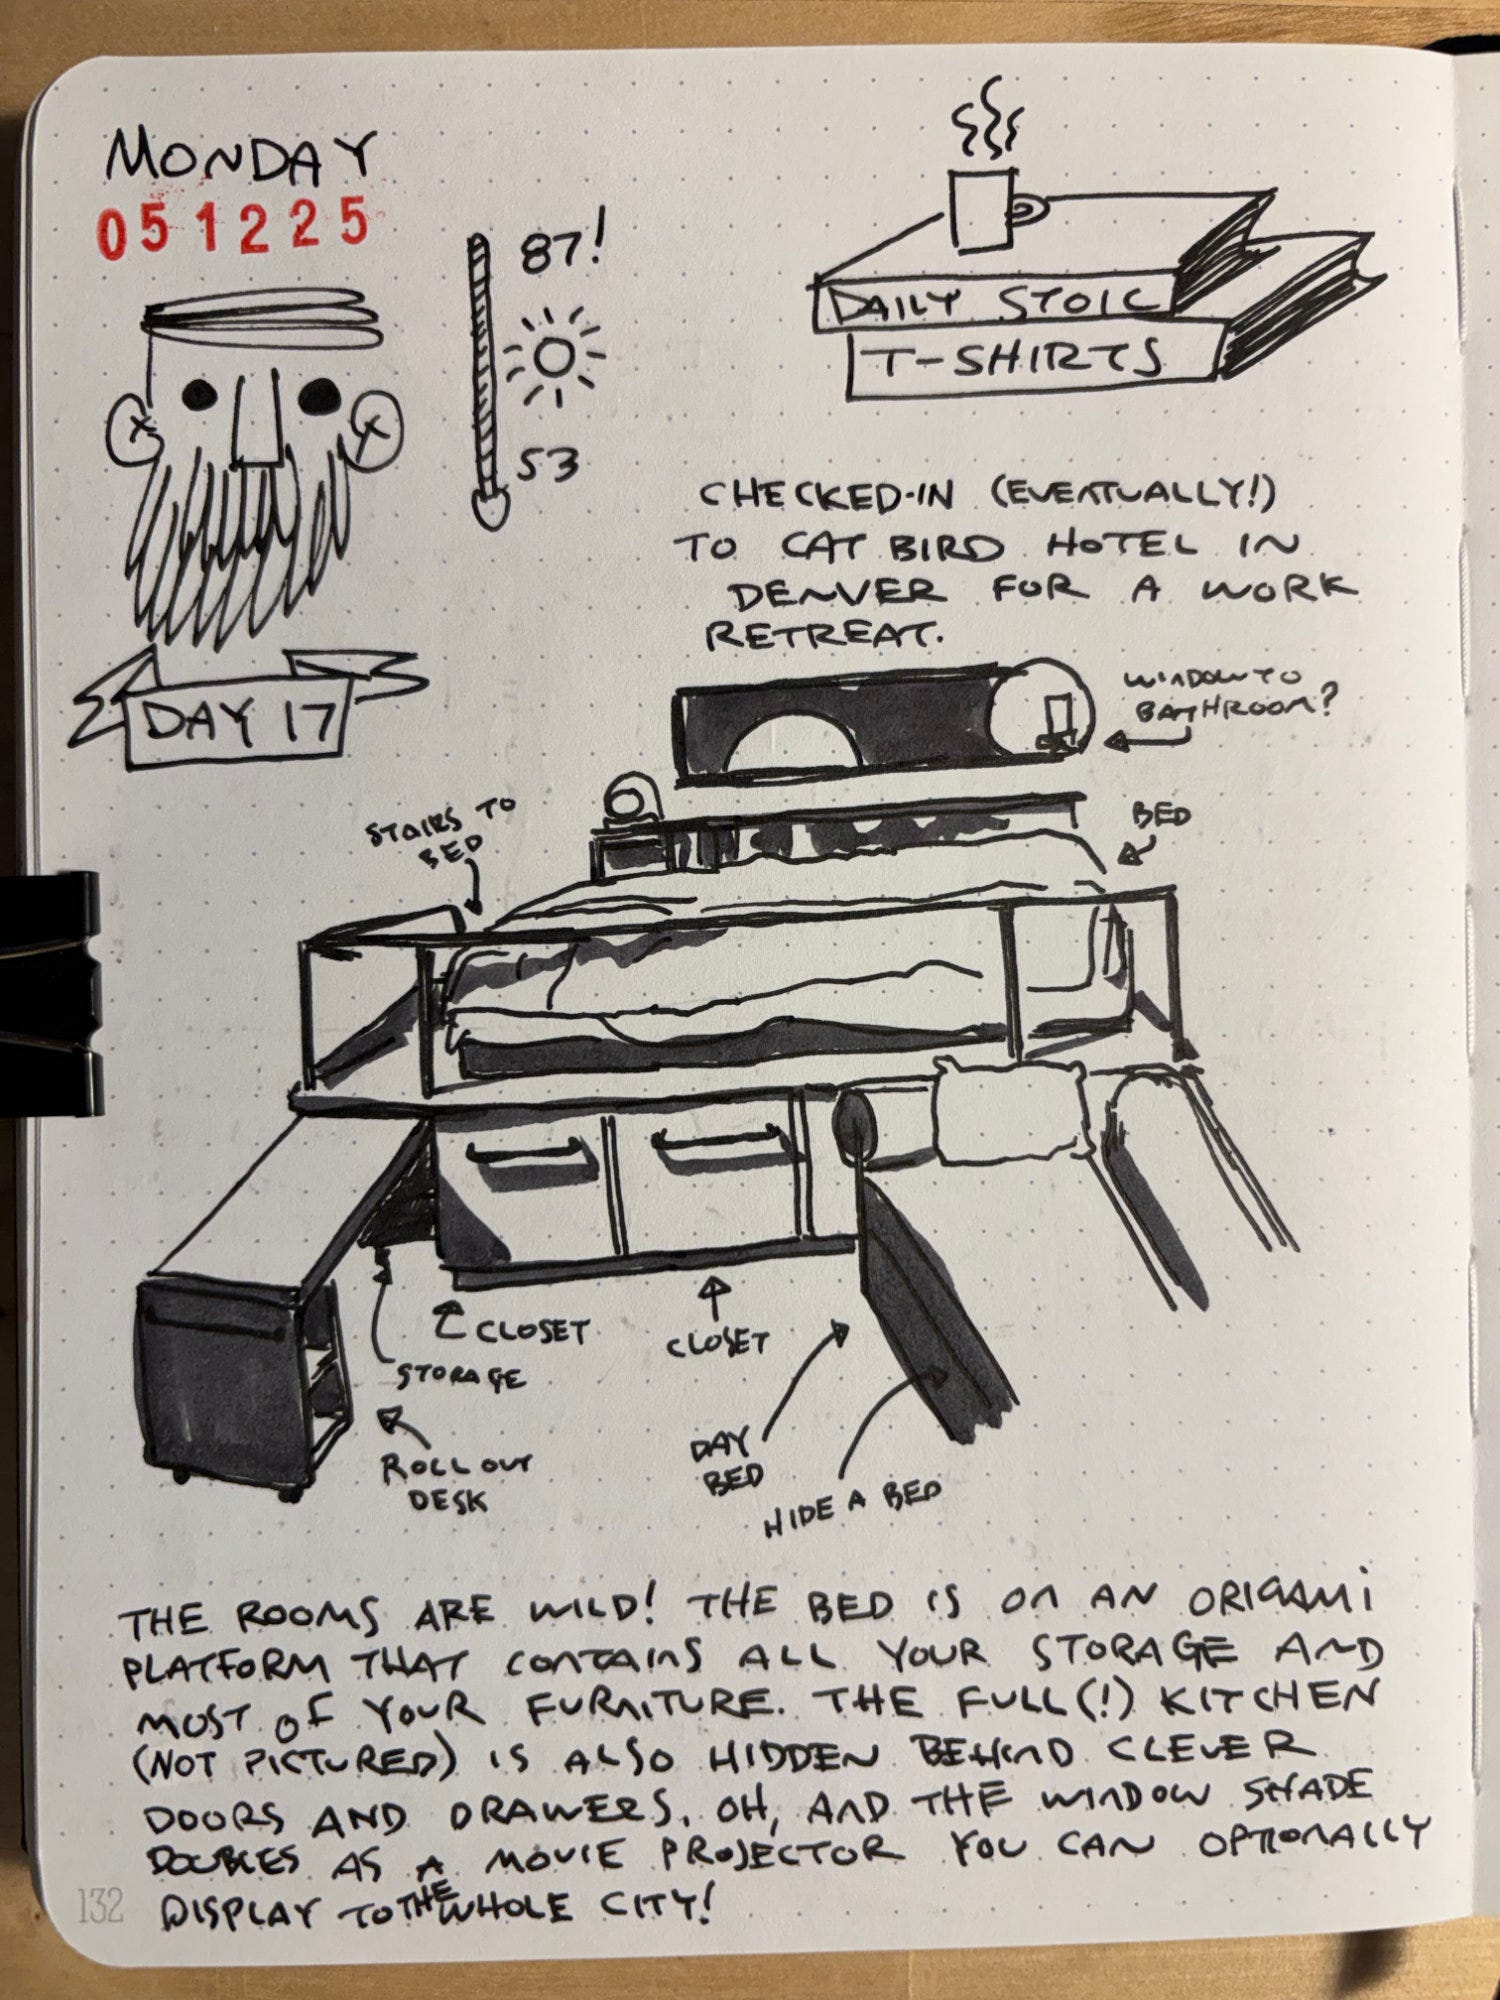 MONDAY
051225
87!
53
DAILY STOIC
T-SHIRTS
DAY 17
CHECKED-IN (EVENTUALLY!)
TO CAT BIRD HOTEL IN
DENVER FOR A WORK
RETREAT.
WINDOW TO
BATHROOM?
STAIRS TO
BED
BED
CLOSET
CLOSET
STORAGE
ROLL OUT
DESK
DAY
BED
HIDE A BED
THE ROOMS ARE WILD! THE BED IS ON AN ORIGAMI
PLATFORM THAT CONTAINS ALL YOUR STORAGE AND
MOST OF YOUR FURNITURE. THE FULL(!) KITCHEN
(NOT PICTURED) IS ALSO HIDDEN BEHIND CLEVER
DOORS AND DRAWERS. OH, AND THE WINDOW SHADE
DOUBLES AS A MOVIE PROJECTOR YOU CAN OPTIONALLY
DISPLAY TO THE WHOLE CITY!
132